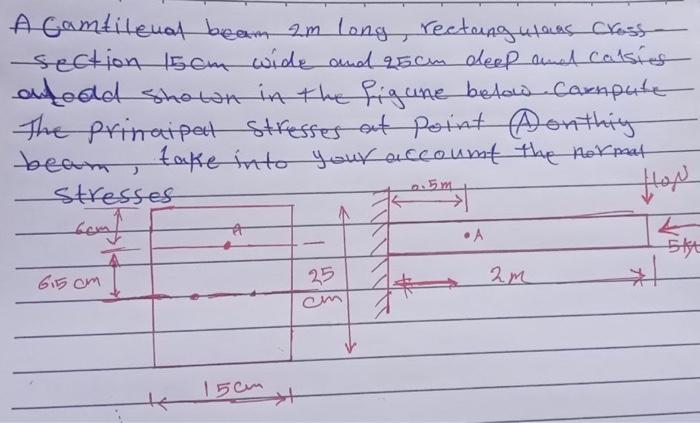 A Cantileval beam 2m long, rectangulaas cross-
section 15cm wide and 25cm deep and calsies
a load shown in the figure below. Compute
The principal stresses at point Ⓐ on this
beam, take into your account the normal
stresses
0.5m
6cm
A
A
5kN
6.5 cm
25
cm
2m
15cm